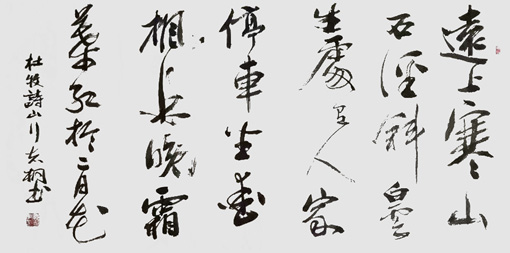 遠上寒山
石徑斜白雲
生處有人家
停車坐愛
楓林晚霜
葉紅於二月花
杜牧詩山行